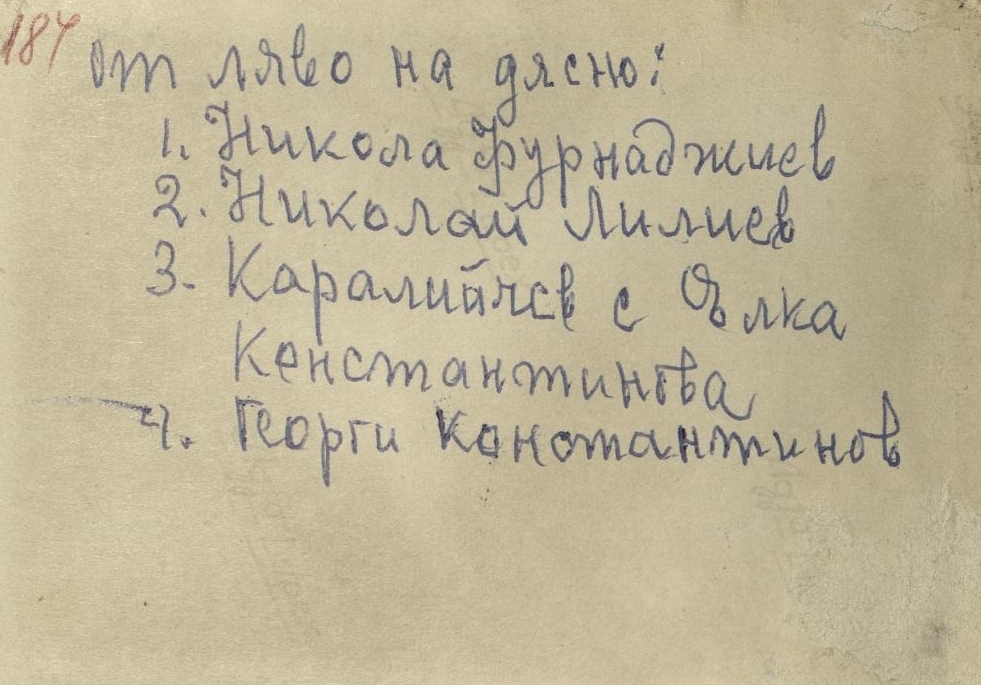 184
от ляво на дясно:
1. Никола Фурнаджиев
2. Николай Лилиев
3. Каралийчев с Елка
Константинова
4. Георги Константинов